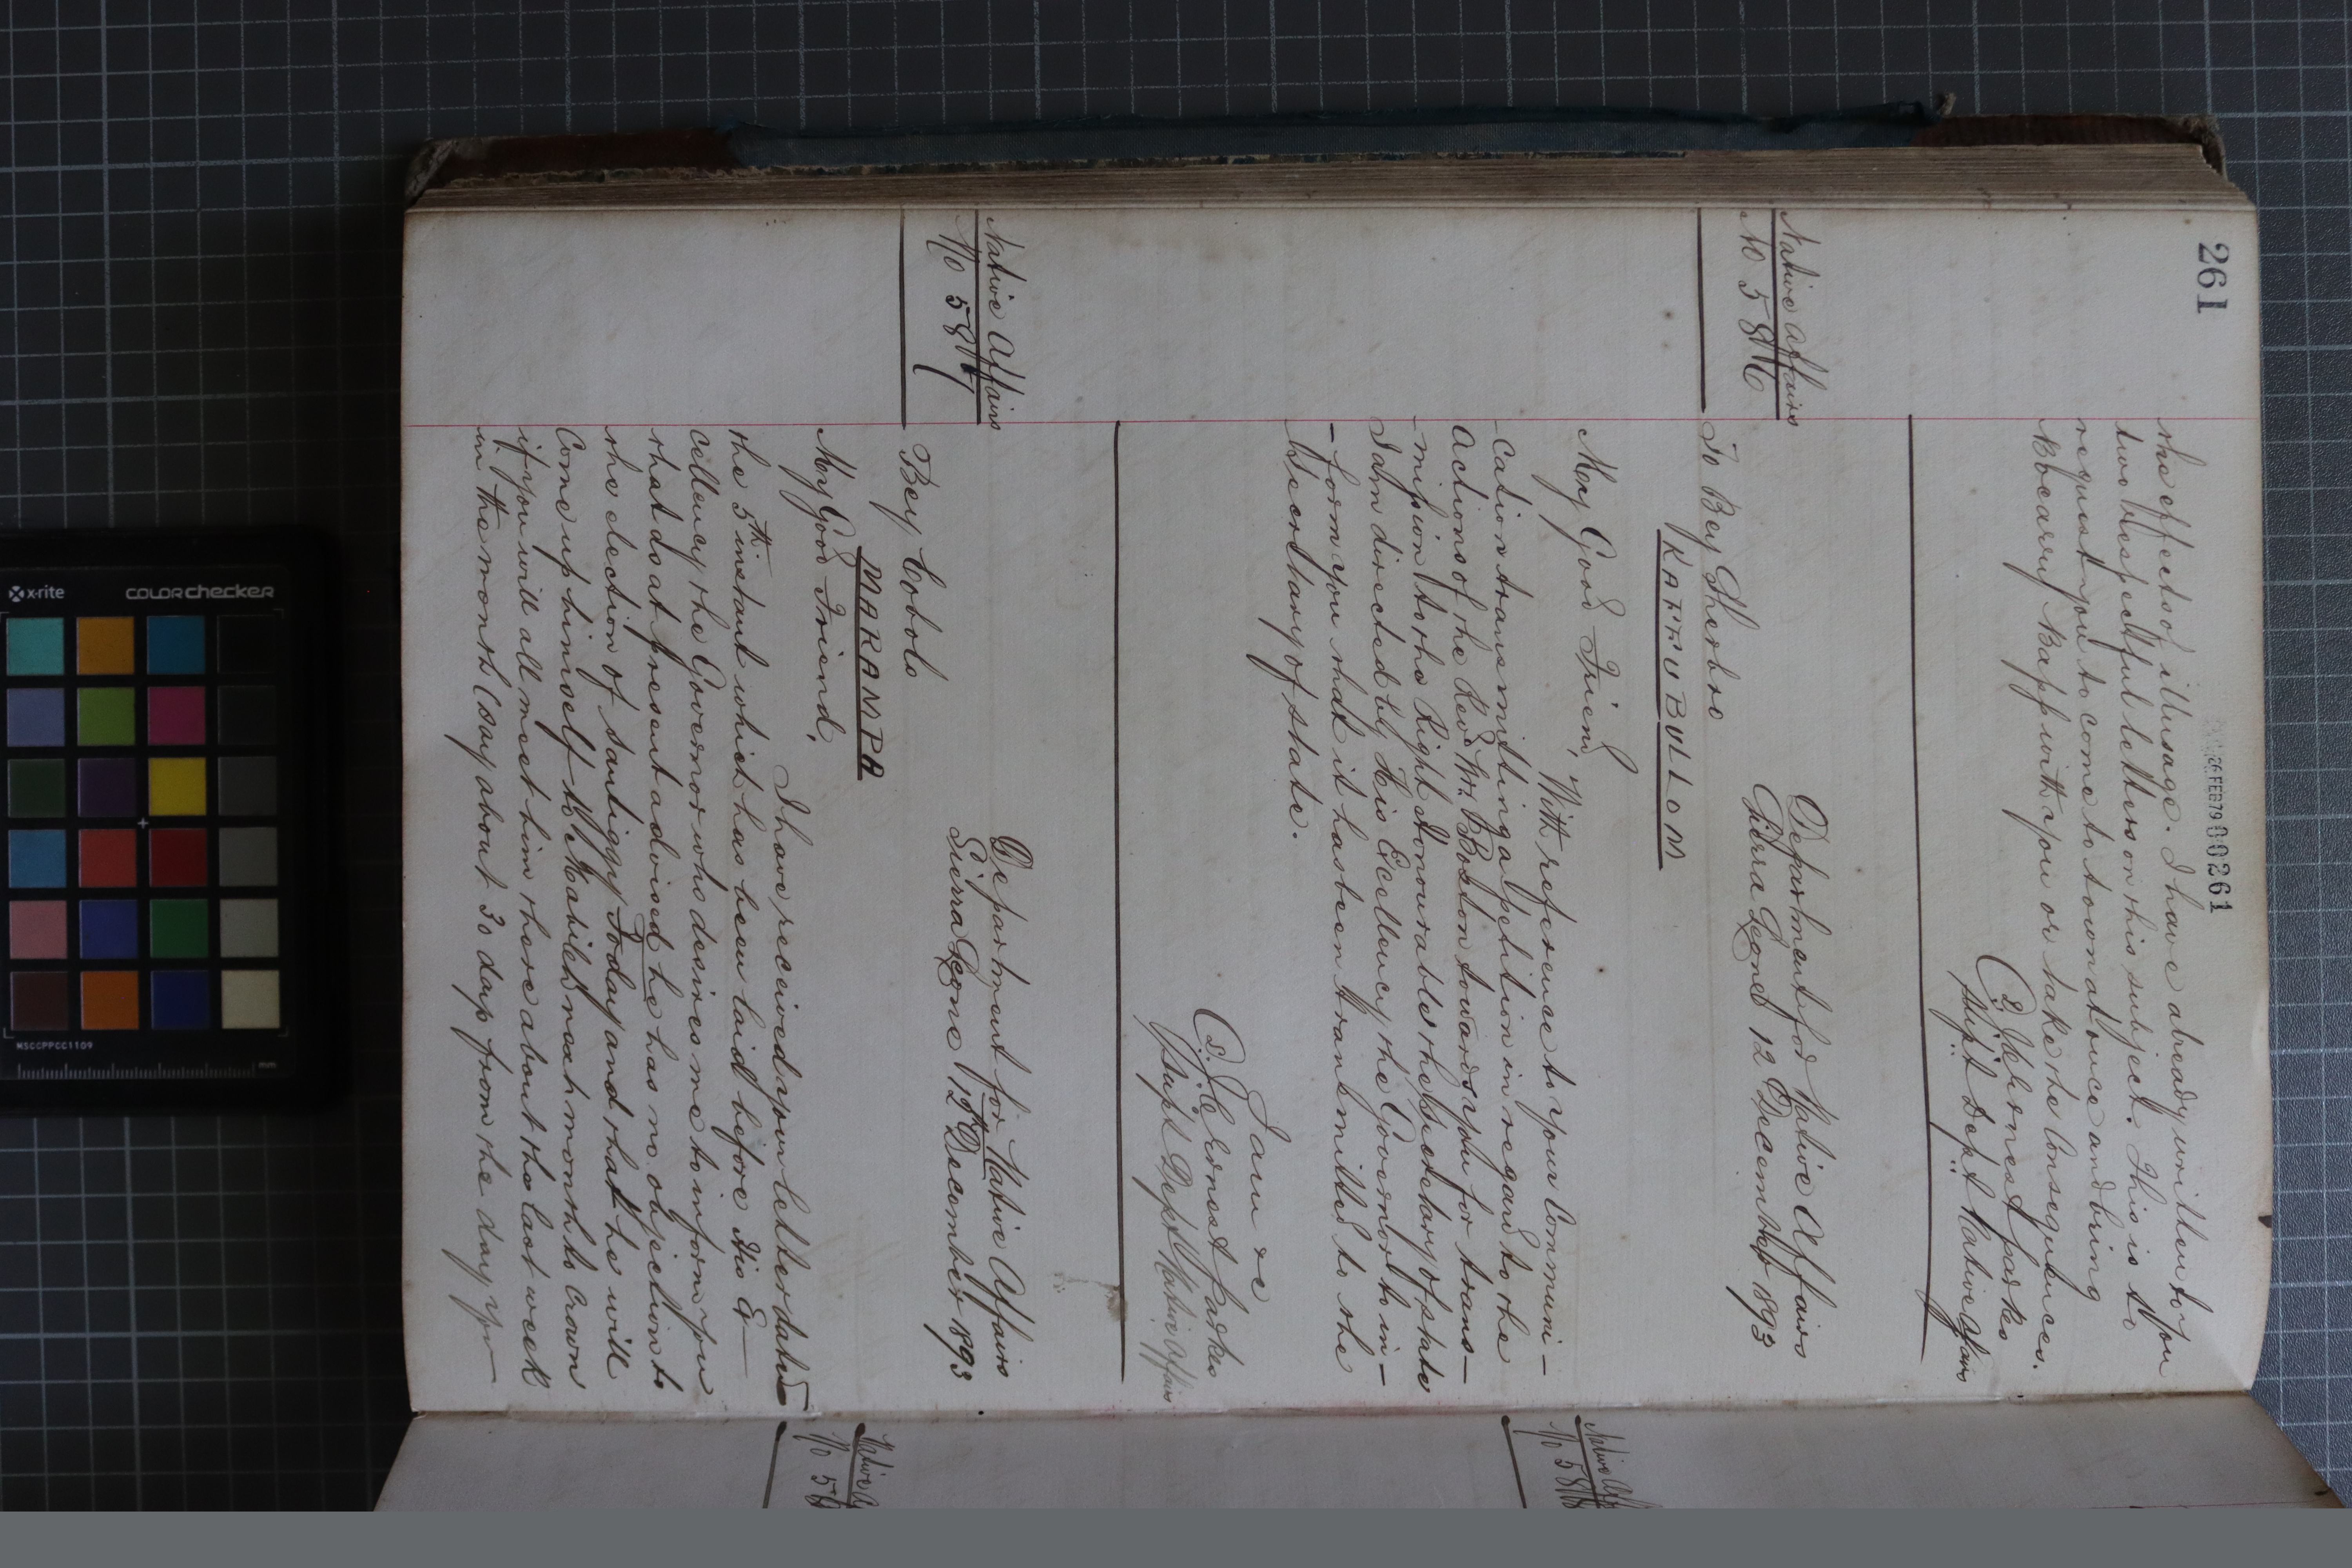 261
26 FEB 79 00261
the effects of illusage. I have already written to you
two respectful letters on this subject. This is to
request you to come to town at once and bring
Bocarry Kapp with you or take the Consequences.
J. C. Ernest Parkes
Supt Dept Native Affairs
Native Affairs
No 586
Department for Native Affairs
Sierra Leone 12 December 1893
To Bey Sherbro
KAFFU BULLOM
My Good Friend,
With reference to your Communi-
cation transmitting a petition in regard to the
Actions of the Revd Mr. Boston towards you for trans-
mission to the Right Honourable the Secretary of State
I am directed by His Excellency the Governor to in-
form you that it has been transmitted to the
Secretary of State.
I am &c
J. C. Ernest Parkes
Supt Dept Native Affairs
Native Affairs
No 587
Department for Native Affairs
Sierra Leone 12th December 1893
Bey Cobolo
MARAMPA
My Good Friend,
I have received your letter dated
the 5th instant which has been laid before His Ex-
cellency the Governor who desires me to inform you
that as at present advised he has no objection to
the election of Santiggy Foday and that he will
Come up himself to Mabileh next month to Crown
if you will all meet him there about the last week
in the month (say about 30 days from the day you
Native
No 58
Native
No 5